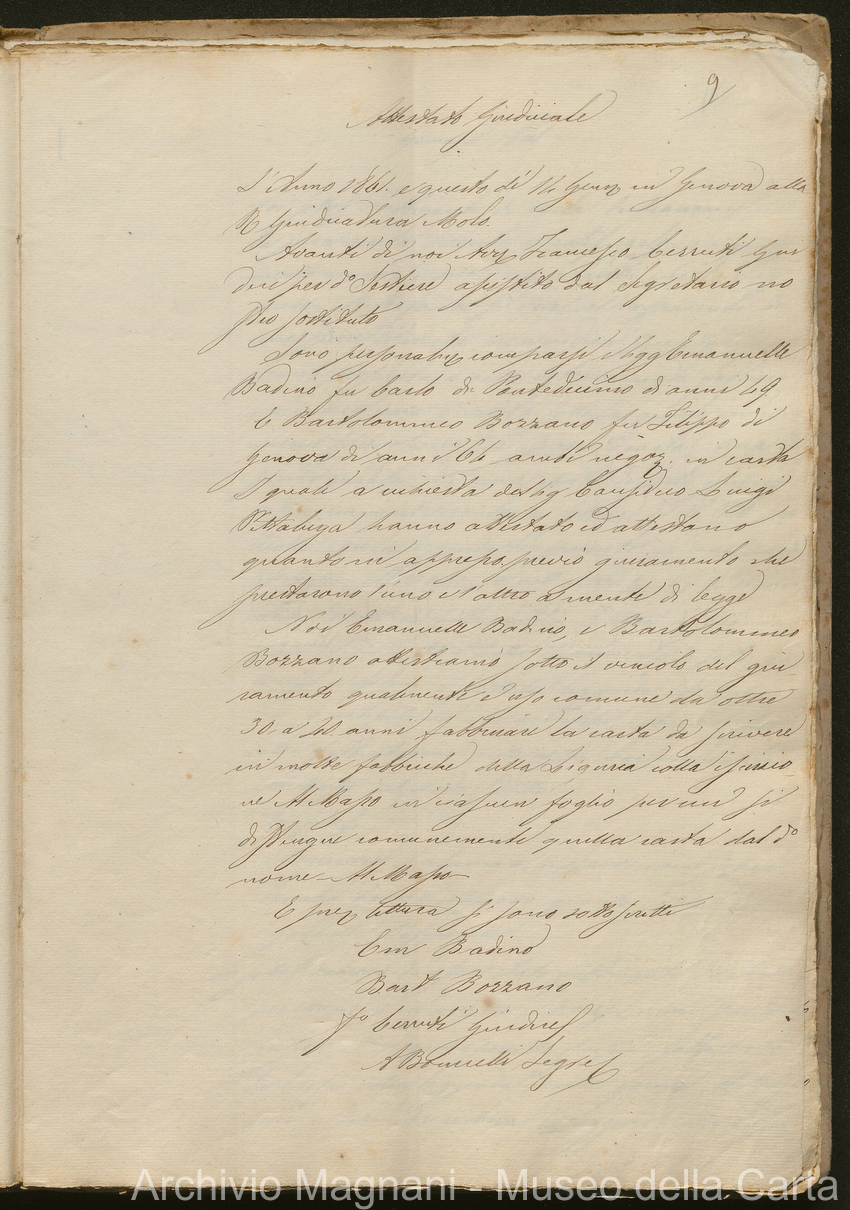 9
Attestato Giudiciale
L'Anno 1861. e questo dì 14 Genn in Genova alla
R Giudicatura Molo.
Avanti di noi Avv Francesco Cerruti Giu
dice per do Sestiere assistito dal Segretario no
stro sostituto
Sono personalm comparsi i Sigg Emanuelle
Badino fu Carlo di Pontedecimo di anni 49
E Bartolommeo Bozzano fu Filippo di
Genova di anni 64 ambi negoz. in carta
I quali a richiesta del Sig Causidico Luigi
Vittaluga hanno attestato ed attestano
quanto in appresso previo giuramento che
prestarono l'uno e l'altro a mente di legge
Noi Emanuelle Badino, e Bartolommeo
Bozzano attestiamo sotto il vincolo del giu-
ramento qualmente è uso comune da oltre
30 a 40 anni fabbricare la carta da scrivere
in molte fabbriche della Liguria colla iscrizio-
ne Al Masso in ciascun foglio per cui si
distingue comunemente quella carta dal do
nome - Al Masso
E prev lettura si sono sottoscritti
Em Badino
Bart Bozzano
Fo Cerruti Giudice
A Segre
Archivio Magnani - Museo della Carta